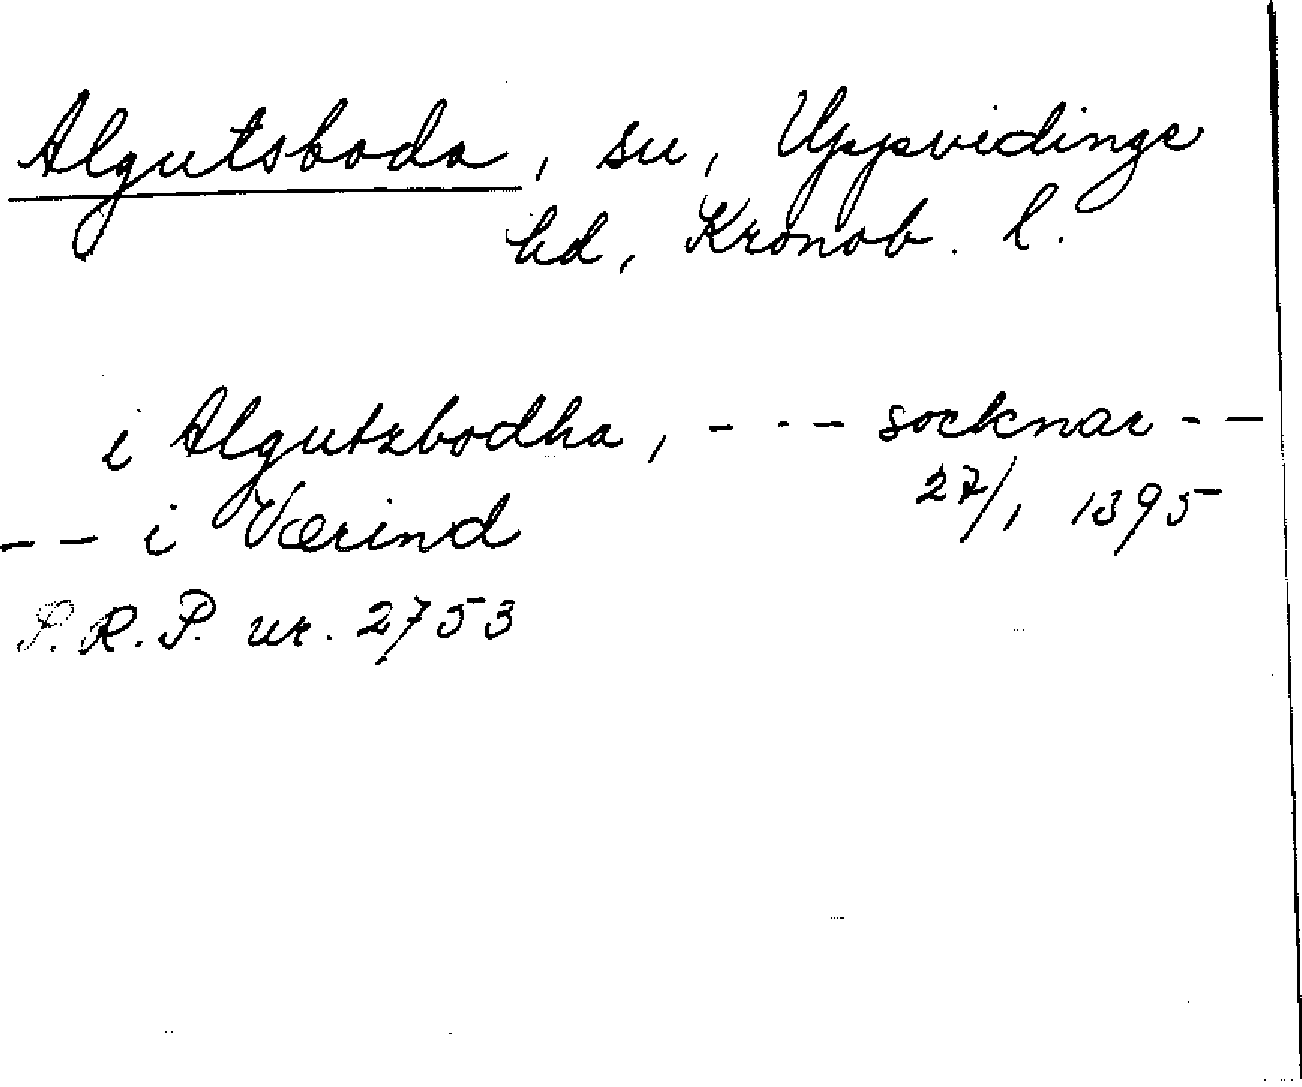 Algutsboda, sn, Uppvidinge
hd, Kronob. l.
i Algutzbodha, - - - socknar - -
- - i Værind
27/1 1395
P.R.P. nr. 2753